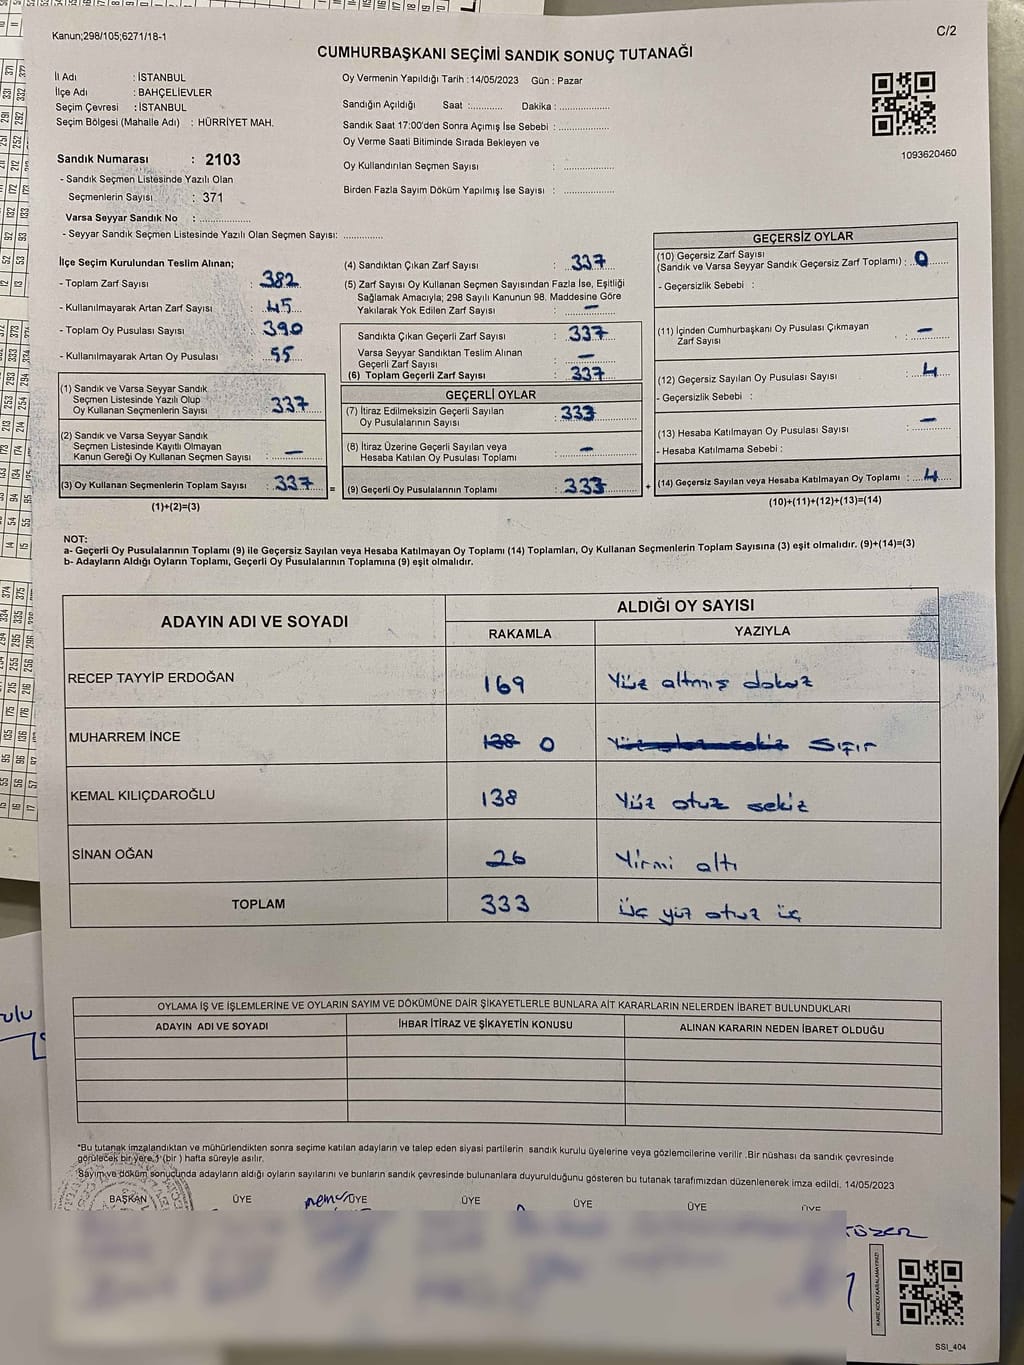 Kanun;298/105;6271/18-1
C/2
CUMHURBAŞKANI SEÇİMİ SANDIK SONUÇ TUTANAĞI
İl Adı : İSTANBUL
İlçe Adı : BAHÇELİEVLER
Seçim Çevresi : İSTANBUL
Seçim Bölgesi (Mahalle Adı) : HÜRRİYET MAH.
Sandık Numarası : 2103
- Sandık Seçmen Listesinde Yazılı Olan
Seçmenlerin Sayısı : 371
Varsa Seyyar Sandık No : ..................
- Seyyar Sandık Seçmen Listesinde Yazılı Olan Seçmen Sayısı: ..............
Oy Vermenin Yapıldığı Tarih :14/05/2023 Gün : Pazar
Sandığın Açıldığı Saat :........... Dakika : ..................
Sandık Saat 17:00'den Sonra Açımış İse Sebebi : ..................
Oy Verme Saati Bitiminde Sırada Bekleyen ve
Oy Kullandırılan Seçmen Sayısı : ..................
Birden Fazla Sayım Döküm Yapılmış İse Sayısı : ..................
1093620460
İlçe Seçim Kurulundan Teslim Alınan;
- Toplam Zarf Sayısı : 382
- Kullanılmayarak Artan Zarf Sayısı : 45
- Toplam Oy Pusulası Sayısı : 390
- Kullanılmayarak Artan Oy Pusulası : 55
(1) Sandık ve Varsa Seyyar Sandık
Seçmen Listesinde Yazılı Olup
Oy Kullanan Seçmenlerin Sayısı : 337
(2) Sandık ve Varsa Seyyar Sandık
Seçmen Listesinde Kayıtlı Olmayan
Kanun Gereği Oy Kullanan Seçmen Sayısı : —
(3) Oy Kullanan Seçmenlerin Toplam Sayısı : 337
(1)+(2)=(3)
=
(4) Sandıktan Çıkan Zarf Sayısı : 337
(5) Zarf Sayısı Oy Kullanan Seçmen Sayısından Fazla İse, Eşitliği
Sağlamak Amacıyla; 298 Sayılı Kanunun 98. Maddesine Göre
Yakılarak Yok Edilen Zarf Sayısı : —
Sandıkta Çıkan Geçerli Zarf Sayısı : 337
Varsa Seyyar Sandıktan Teslim Alınan
Geçerli Zarf Sayısı : —
(6) Toplam Geçerli Zarf Sayısı : 337
GEÇERLİ OYLAR
(7) İtiraz Edilmeksizin Geçerli Sayılan
Oy Pusulalarının Sayısı : 333
(8) İtiraz Üzerine Geçerli Sayılan veya
Hesaba Katılan Oy Pusulası Toplamı : —
(9) Geçerli Oy Pusulalarının Toplamı : 333
+
GEÇERSİZ OYLAR
(10) Geçersiz Zarf Sayısı
(Sandık ve Varsa Seyyar Sandık Geçersiz Zarf Toplamı) : 0
- Geçersizlik Sebebi :
(11) İçinden Cumhurbaşkanı Oy Pusulası Çıkmayan
Zarf Sayısı : —
(12) Geçersiz Sayılan Oy Pusulası Sayısı : 4
- Geçersizlik Sebebi :
(13) Hesaba Katılmayan Oy Pusulası Sayısı : —
- Hesaba Katılmama Sebebi :
(14) Geçersiz Sayılan veya Hesaba Katılmayan Oy Toplamı : 4
(10)+(11)+(12)+(13)=(14)
NOT:
a- Geçerli Oy Pusulalarının Toplamı (9) ile Geçersiz Sayılan veya Hesaba Katılmayan Oy Toplamı (14) Toplamları, Oy Kullanan Seçmenlerin Toplam Sayısına (3) eşit olmalıdır. (9)+(14)=(3)
b- Adayların Aldığı Oyların Toplamı, Geçerli Oy Pusulalarının Toplamına (9) eşit olmalıdır.
ADAYIN ADI VE SOYADI
ALDIĞI OY SAYISI
RAKAMLA YAZIYLA
RECEP TAYYİP ERDOĞAN 169 Yüz altmış dokuz
MUHARREM İNCE 138 0 Yüz otuz sekiz Sıfır
KEMAL KILIÇDAROĞLU 138 Yüz otuz sekiz
SİNAN OĞAN 26 Yirmi altı
TOPLAM 333 üç yüz otuz üç
OYLAMA İŞ VE İŞLEMLERİNE VE OYLARIN SAYIM VE DÖKÜMÜNE DAİR ŞİKAYETLERLE BUNLARA AİT KARARLARIN NELERDEN İBARET BULUNDUKLARI
ADAYIN ADI VE SOYADI İHBAR İTİRAZ VE ŞİKAYETİN KONUSU ALINAN KARARIN NEDEN İBARET OLDUĞU
*Bu tutanak imzalandıktan ve mühürlendikten sonra seçime katılan adayların ve talep eden siyasi partilerin sandık kurulu üyelerine veya gözlemcilerine verilir .Bir nüshası da sandık çevresinde
görülecek bir yere 1 (bir ) hafta süreyle asılır.
Sayım ve döküm sonucunda adayların aldığı oyların sayılarını ve bunların sandık çevresinde bulunanlara duyurulduğunu gösteren bu tutanak tarafımızdan düzenlenerek imza edildi. 14/05/2023
BAŞKAN ÜYE ÜYE ÜYE ÜYE ÜYE ÜYE
KARE KODU KARALAMAYINIZ!
SSI_404